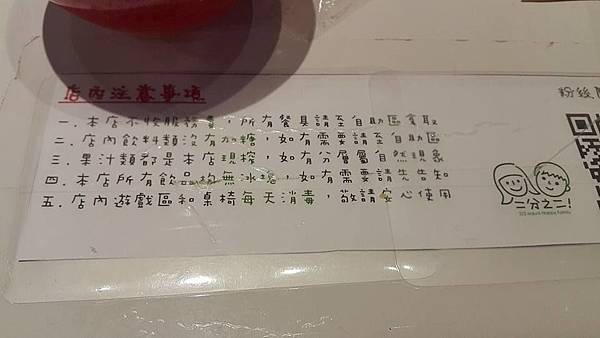 店內注意事項
一. 本店不收服務費，所有餐具請至自助區拿取
二. 店內飲料類沒有加糖，如有需要請至自助區
三. 果汁類都是本店現榨，如有分層屬自然現象
四. 本店所有飲品均無冰塊，如有需要請先告知
五. 店內遊戲區和桌椅每天消毒，敬請安心使用
粉絲
二分之二!